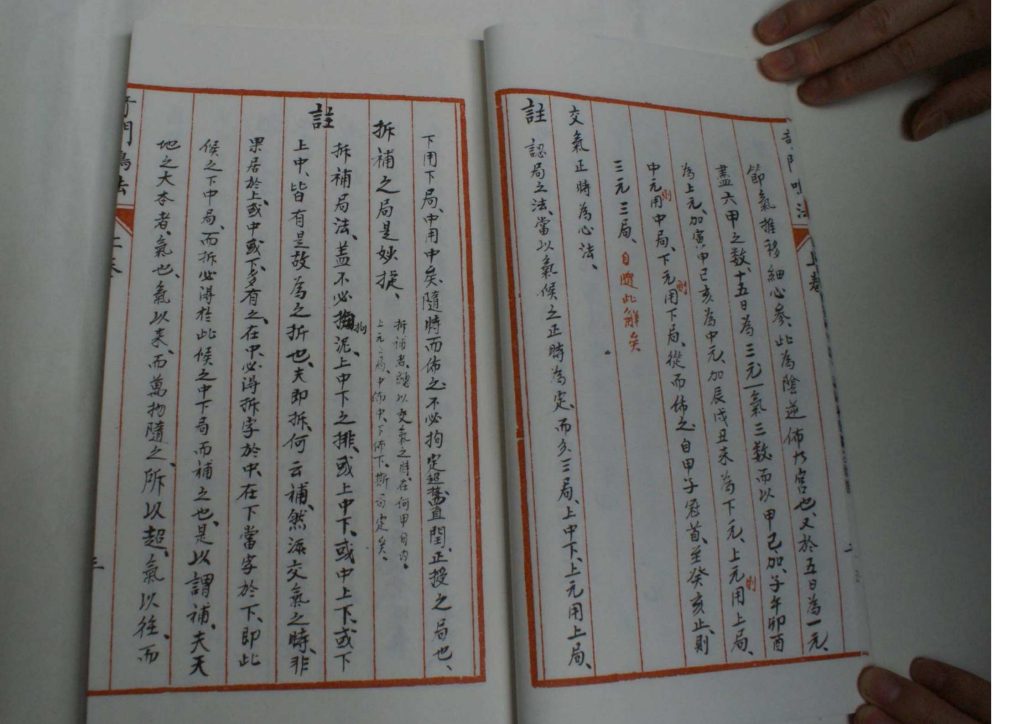 上卷
節氣推移細心參、此為陰逆佈九宮也、又於五日為一元、
盡六甲之数、十五日為三元、一氣三数、而以甲己加、子午卯酉
為上元、加寅申己亥為中元、加辰戌丑未為下元、上元則用上局、
中元則用中局、下元則用下局、從而佈之、自甲子冠首、至癸亥止、則
三元三局、自隨此解矣
交氣正時為心法、
註 認局之法、當以氣候之正時為定、而分三局、上中下、上元用上局、
下用下局、中用中矣、隨時而佈之、不必拘定超直閏、正授之局也、
拆補之局是妙捷、
拆補者、随以交氣之時、在何甲日内、
上元上局、中佈中、下佈下、斯可定矣、
註 拆補局法、盖不必拘泥、上中下之排、或上中下、或中上下、或下
上中、皆有是故為之折也、夫即拆、何云補、然海交氣之時、非
果居於上、或中或下、多有之、在中、必得拆字於中、在下當字於下、即此
候之下中局、而拆必得於此候之中下局而補之也、是以謂補、夫天
地之大本者、氣也、氣以来、而萬物隨之、所以超、氣以往、而
奇門鳴法
上卷
三